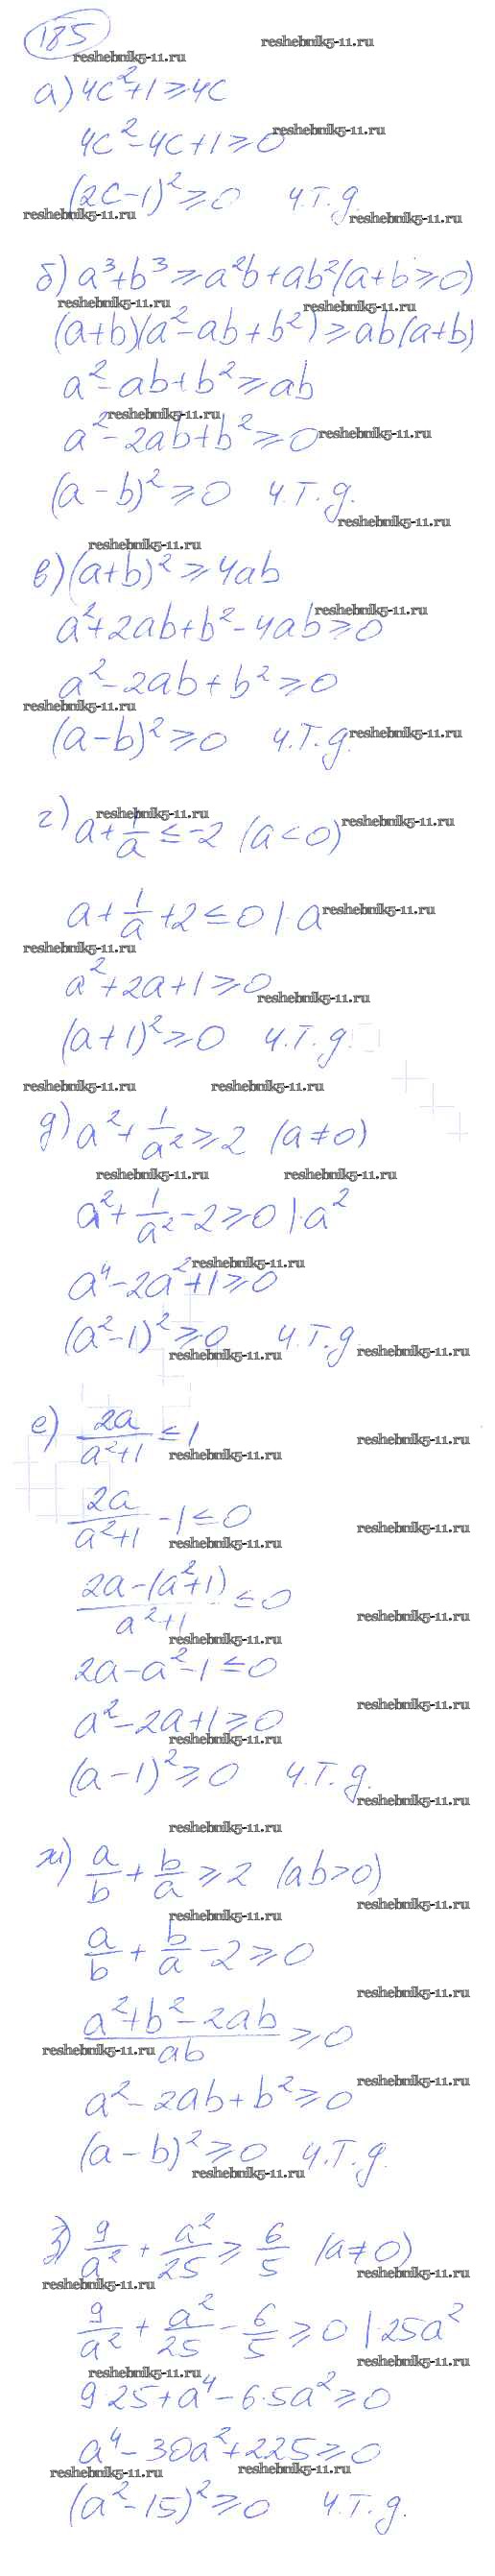 185
reshebnik5-11.ru reshebnik5-11.ru
а) 4c²+1≥4c
reshebnik5-11.ru
4c²-4c+1≥0
(2c-1)²≥0 ч.т.д.
reshebnik5-11.ru reshebnik5-11.ru
б) a³+b³≥a²b+ab² (a+b≥0)
reshebnik5-11.ru reshebnik5-11.ru
(a+b)(a²-ab+b²)≥ab(a+b)
a²-ab+b²≥ab
reshebnik5-11.ru
a²-2ab+b²≥0
reshebnik5-11.ru
(a-b)²≥0 ч.т.д.
reshebnik5-11.ru
reshebnik5-11.ru
в) (a+b)²≥4ab
reshebnik5-11.ru
a²+2ab+b²-4ab≥0
a²-2ab+b²≥0
reshebnik5-11.ru
(a-b)²≥0 ч.т.д.
reshebnik5-11.ru
reshebnik5-11.ru reshebnik5-11.ru
г) a+1/a≤-2 (a<0)
a+1/a+2≤0 |·a
reshebnik5-11.ru
reshebnik5-11.ru
a²+2a+1≥0
reshebnik5-11.ru
(a+1)²≥0 ч.т.д.
reshebnik5-11.ru reshebnik5-11.ru
д) a²+1/a²≥2 (a≠0)
reshebnik5-11.ru reshebnik5-11.ru
a²+1/a²-2≥0 |·a²
reshebnik5-11.ru
a⁴-2a²+1≥0
(a²-1)²≥0 ч.т.д.
reshebnik5-11.ru reshebnik5-11.ru
е) 2a/(a²+1)≤1
reshebnik5-11.ru
reshebnik5-11.ru
2a/(a²+1)-1≤0
reshebnik5-11.ru
reshebnik5-11.ru
(2a-(a²+1))/(a²+1)≤0
reshebnik5-11.ru
reshebnik5-11.ru
2a-a²-1≤0
reshebnik5-11.ru
a²-2a+1≥0
reshebnik5-11.ru
(a-1)²≥0 ч.т.д.
reshebnik5-11.ru
reshebnik5-11.ru
ж) a/b+b/a≥2 (ab>0)
reshebnik5-11.ru
reshebnik5-11.ru
a/b+b/a-2≥0
reshebnik5-11.ru
(a²+b²-2ab)/ab≥0
reshebnik5-11.ru
reshebnik5-11.ru
a²-2ab+b²≥0
(a-b)²≥0 ч.т.д.
reshebnik5-11.ru
з) 9/a²+a²/25≥6/5 (a≠0)
reshebnik5-11.ru reshebnik5-11.ru
9/a²+a²/25-6/5≥0 |·25a²
reshebnik5-11.ru
reshebnik5-11.ru
9·25+a⁴-6·5a²≥0
a⁴-30a²+225≥0
reshebnik5-11.ru reshebnik5-11.ru
(a²-15)²≥0 ч.т.д.